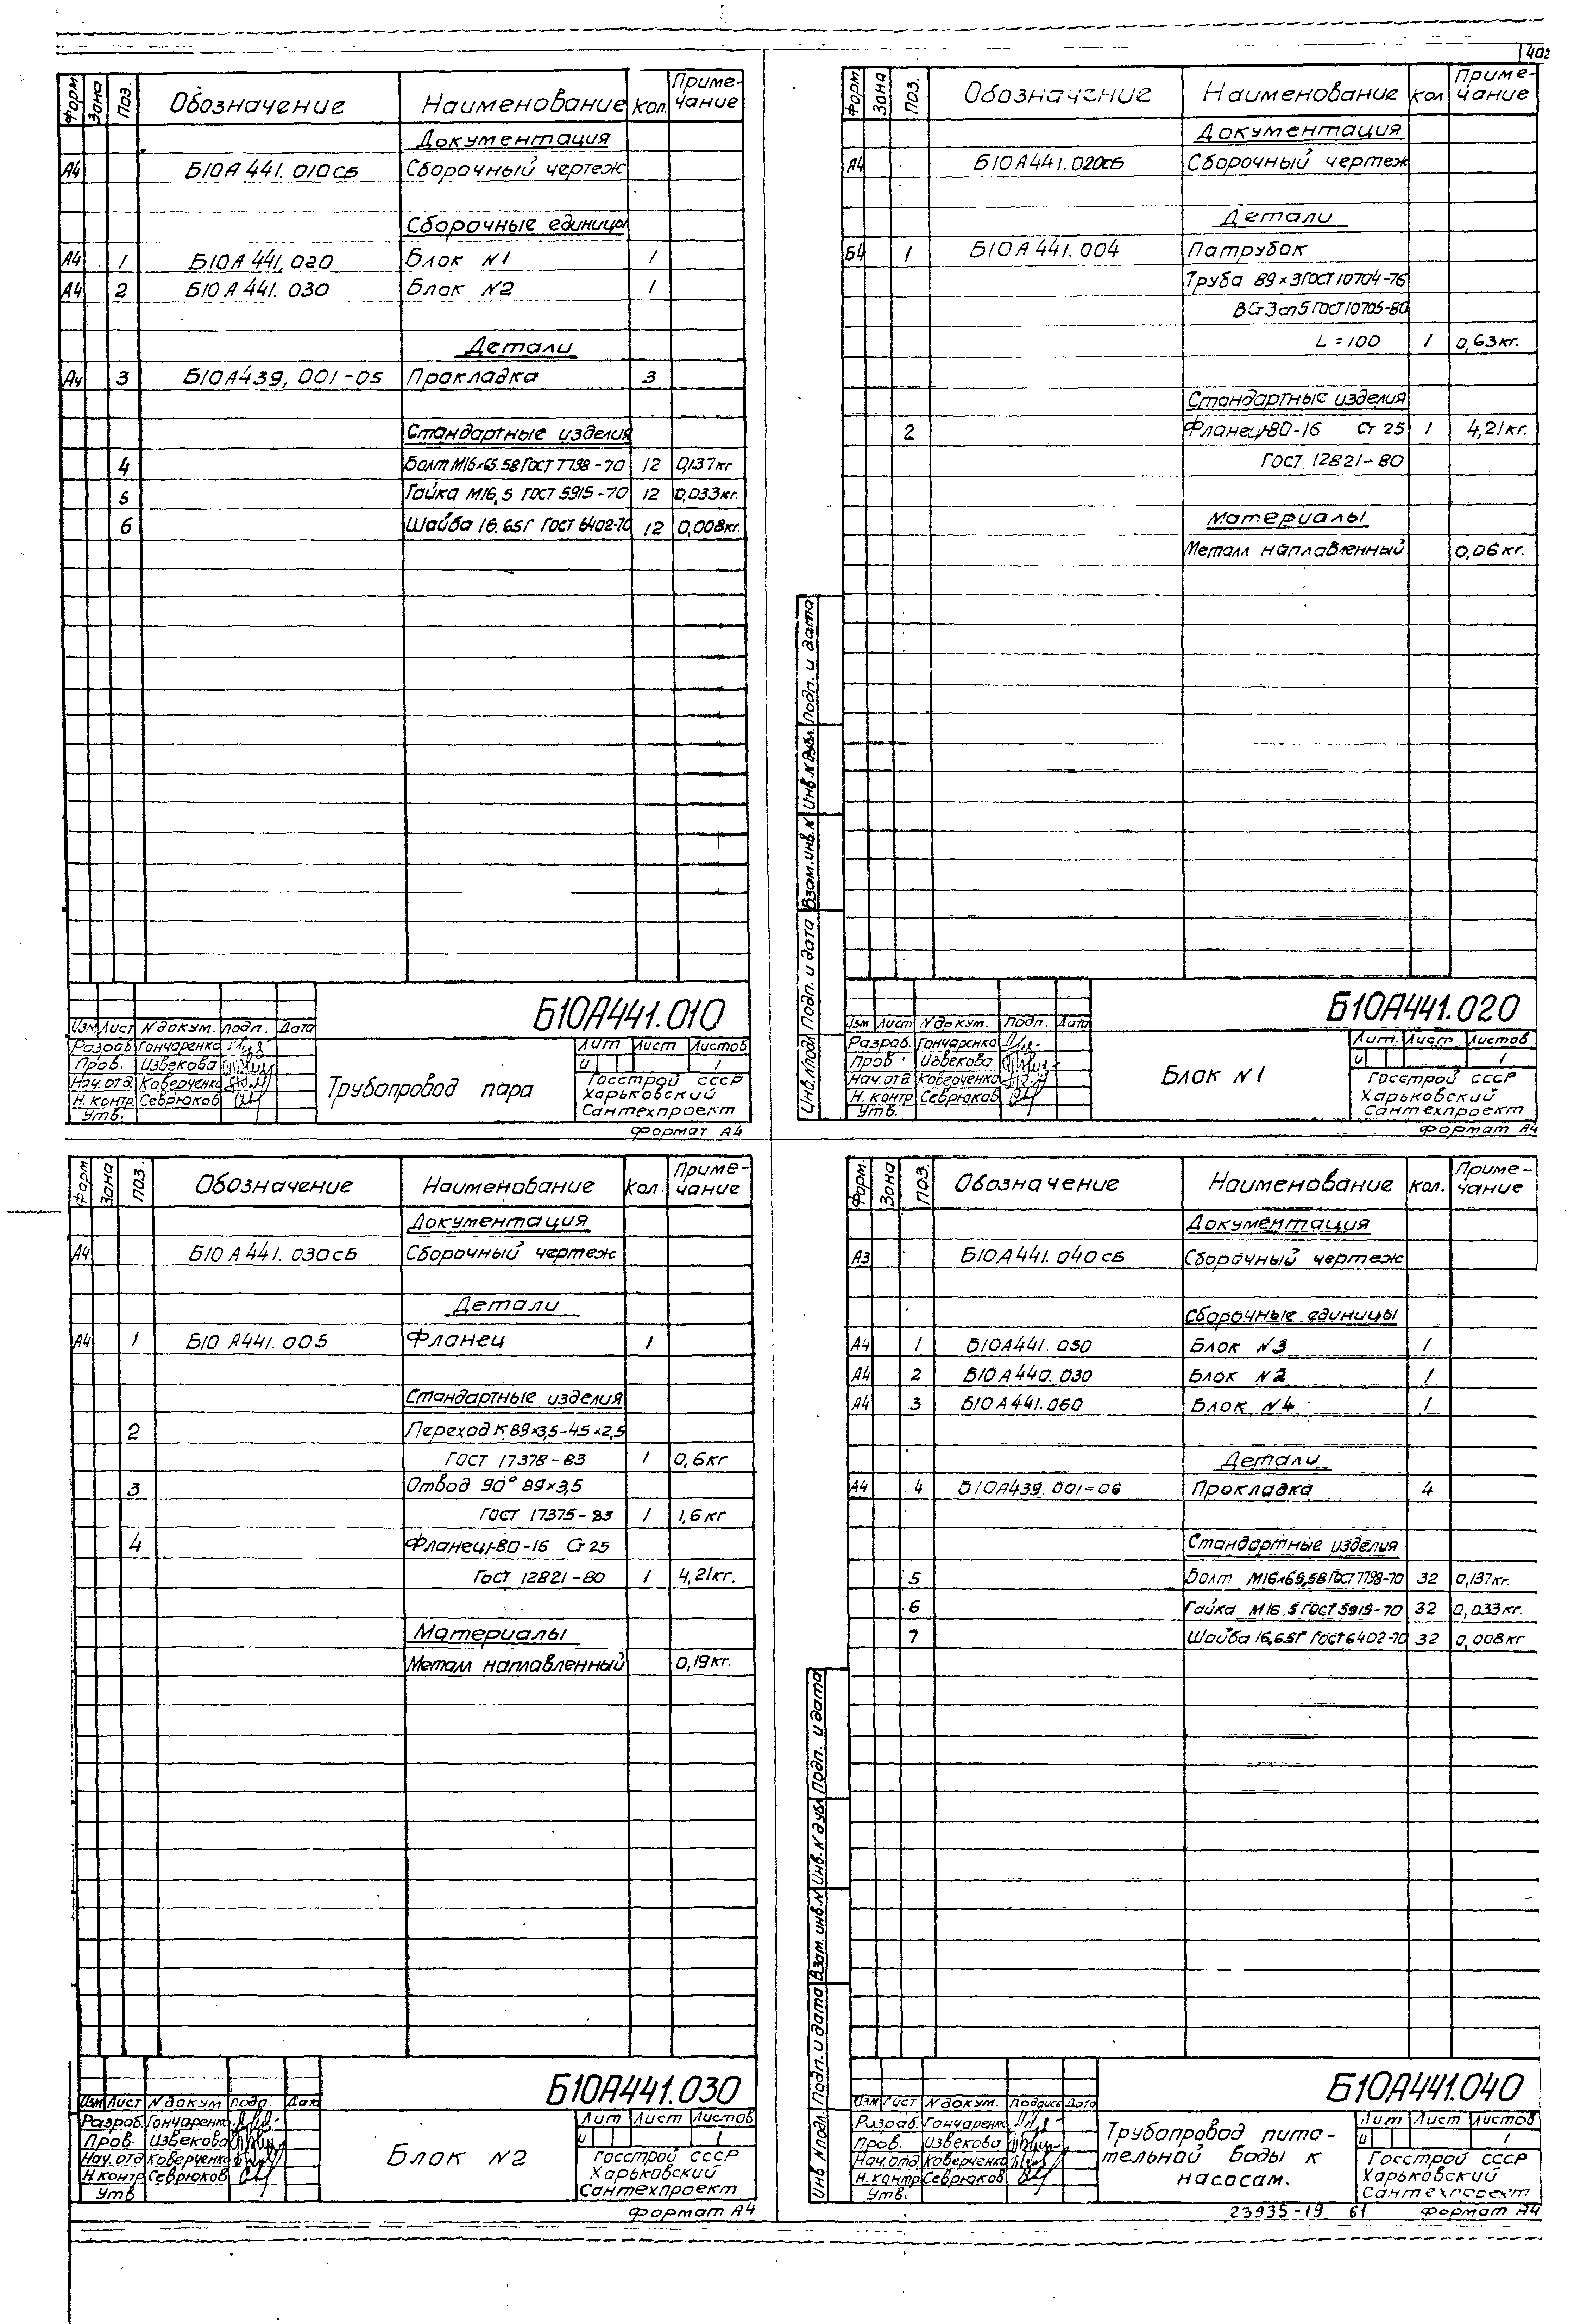 402
Форм Зона Поз. Обозначение Наименование Кол. Приме-
чание
Документация
А4 Б10А441.010СБ Сборочный чертеж
Сборочные единицы
А4 1 Б10А441.020 Блок N1 1
А4 2 Б10А441.030 Блок N2 1
Детали
А4 3 Б10А439,001-05 Прокладка 3
Стандартные изделия
4 Болт М16×65.58 ГОСТ 7798-70 12 0,137кг
5 Гайка М16,5 ГОСТ 5915-70 12 0,033кг.
6 Шайба 16.65Г ГОСТ 6402-70 12 0,008кг.
Б10А441.010
Изм Лист N докум. Подп. Дата
Разраб Гончаренко
Пров. Извекова
Нач.отд Коверченко
Н. контр Севрюков
Утв.
Трубопровод пара
Лит Лист Листов
И 1
Госстрой СССР
Харьковский
Сантехпроект
Формат А4
Форм Зона Поз. Обозначение Наименование Кол Приме-
чание
Документация
А4 Б10А441.020СБ Сборочный чертеж
Детали
Б4 1 Б10А441.004 Патрубок
Труба 89×3 ГОСТ 10704-76
ВСт3сп5 ГОСТ 10705-80
L=100 1 0,63кг.
Стандартные изделия
2 Фланец1-80-16 Ст 25 1 4,21кг.
ГОСТ 12821-80
Материалы
Металл наплавленный 0,06кг.
Инв.N подл Подп. и дата Взам.инв.N Инв.N дубл. Подп. и дата
Б10А441.020
Изм Лист N докум. Подп. Дата
Разраб. Гончаренко
Пров Извекова
Нач.отд Коверченко
Н. контр Севрюков
Утв.
Блок N1
Лит. Лист Листов
И 1
Госстрой СССР
Харьковский
Сантехпроект
Формат А4
Форм Зона Поз. Обозначение Наименование Кол. Приме-
чание
Документация
А4 Б10А441.030СБ Сборочный чертеж
Детали
А4 1 Б10А441.005 Фланец 1
Стандартные изделия
2 Переход К 89×3,5-45×2,5
ГОСТ 17378-83 1 0,6кг
3 Отвод 90° 89×3,5
ГОСТ 17375-83 1 1,6кг
4 Фланец1-80-16 Ст 25
ГОСТ 12821-80 1 4,21кг.
Материалы
Металл наплавленный 0,19кг.
Б10А441.030
Изм Лист N докум Подп. Дата
Разраб Гончаренко
Пров. Извекова
Нач.отд Коверченко
Н.контр Севрюков
Утв
Блок N2
Лит Лист Листов
И 1
Госстрой СССР
Харьковский
Сантехпроект
Формат А4
Форм. Зона Поз. Обозначение Наименование Кол. Приме-
чание
Документация
А3 Б10А441.040СБ Сборочный чертеж
Сборочные единицы
А4 1 Б10А441.050 Блок N3 1
А4 2 Б10А440.030 Блок N2 1
А4 3 Б10А441.060 Блок N4 1
Детали
А4 4 Б10А439.001-06 Прокладка 4
Стандартные изделия
5 Болт М16×65,58 ГОСТ 7798-70 32 0,137кг.
6 Гайка М16.5 ГОСТ 5915-70 32 0,033кг.
7 Шайба 16,65Г ГОСТ 6402-70 32 0,008кг
Инв N подл. Подп. и дата Взам. инв. N Инв. N дубл Подп. и дата
Б10А441.040
Изм Лист N докум. Подпись Дата
Разраб. Гончаренко
Пров. Извекова
Нач.отд Коверченко
Н. контр Севрюков
Утв.
Трубопровод пита-
тельной воды к
насосам.
Лит Лист Листов
И 1
Госстрой СССР
Харьковский
Сантехпроект
23935-19 61 Формат А4